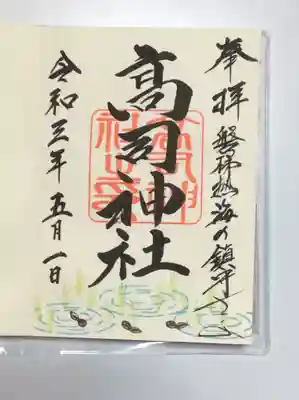 奉拝
磐梯熱海の鎮守さま
高司神社
令和三年五月一日